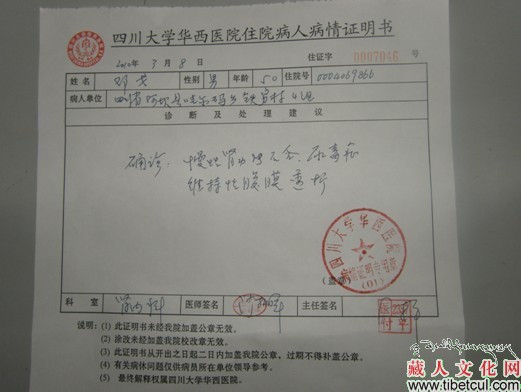 四川大学华西医院住院病人病情证明书
2010年 3月 8日 住证字 0007046号
姓名 邓戈 性别 男 年龄 50 住院号 0004069866
病人单位 四川省阿坝县 乡 村 4组
诊断及处理建议
确诊: 慢性肾功能不全、尿毒症
维持性腹膜透析
四川大学华西医院
病情证明专用章
(01)
(盖章)
科室 肾内科 医师签名 主任签名
说明: (1) 此证明书未经我院加盖公章无效。
(2) 涂改未经我院校改章无效。
(3) 此证明书从开出之日起二日内加盖我院公章,过期不得补盖公章。
(4) 有关病休问题仅供病员所在单位领导参考。
(5) 最终解释权属四川大学华西医院。
藏人文化网
www.tibetcul.com